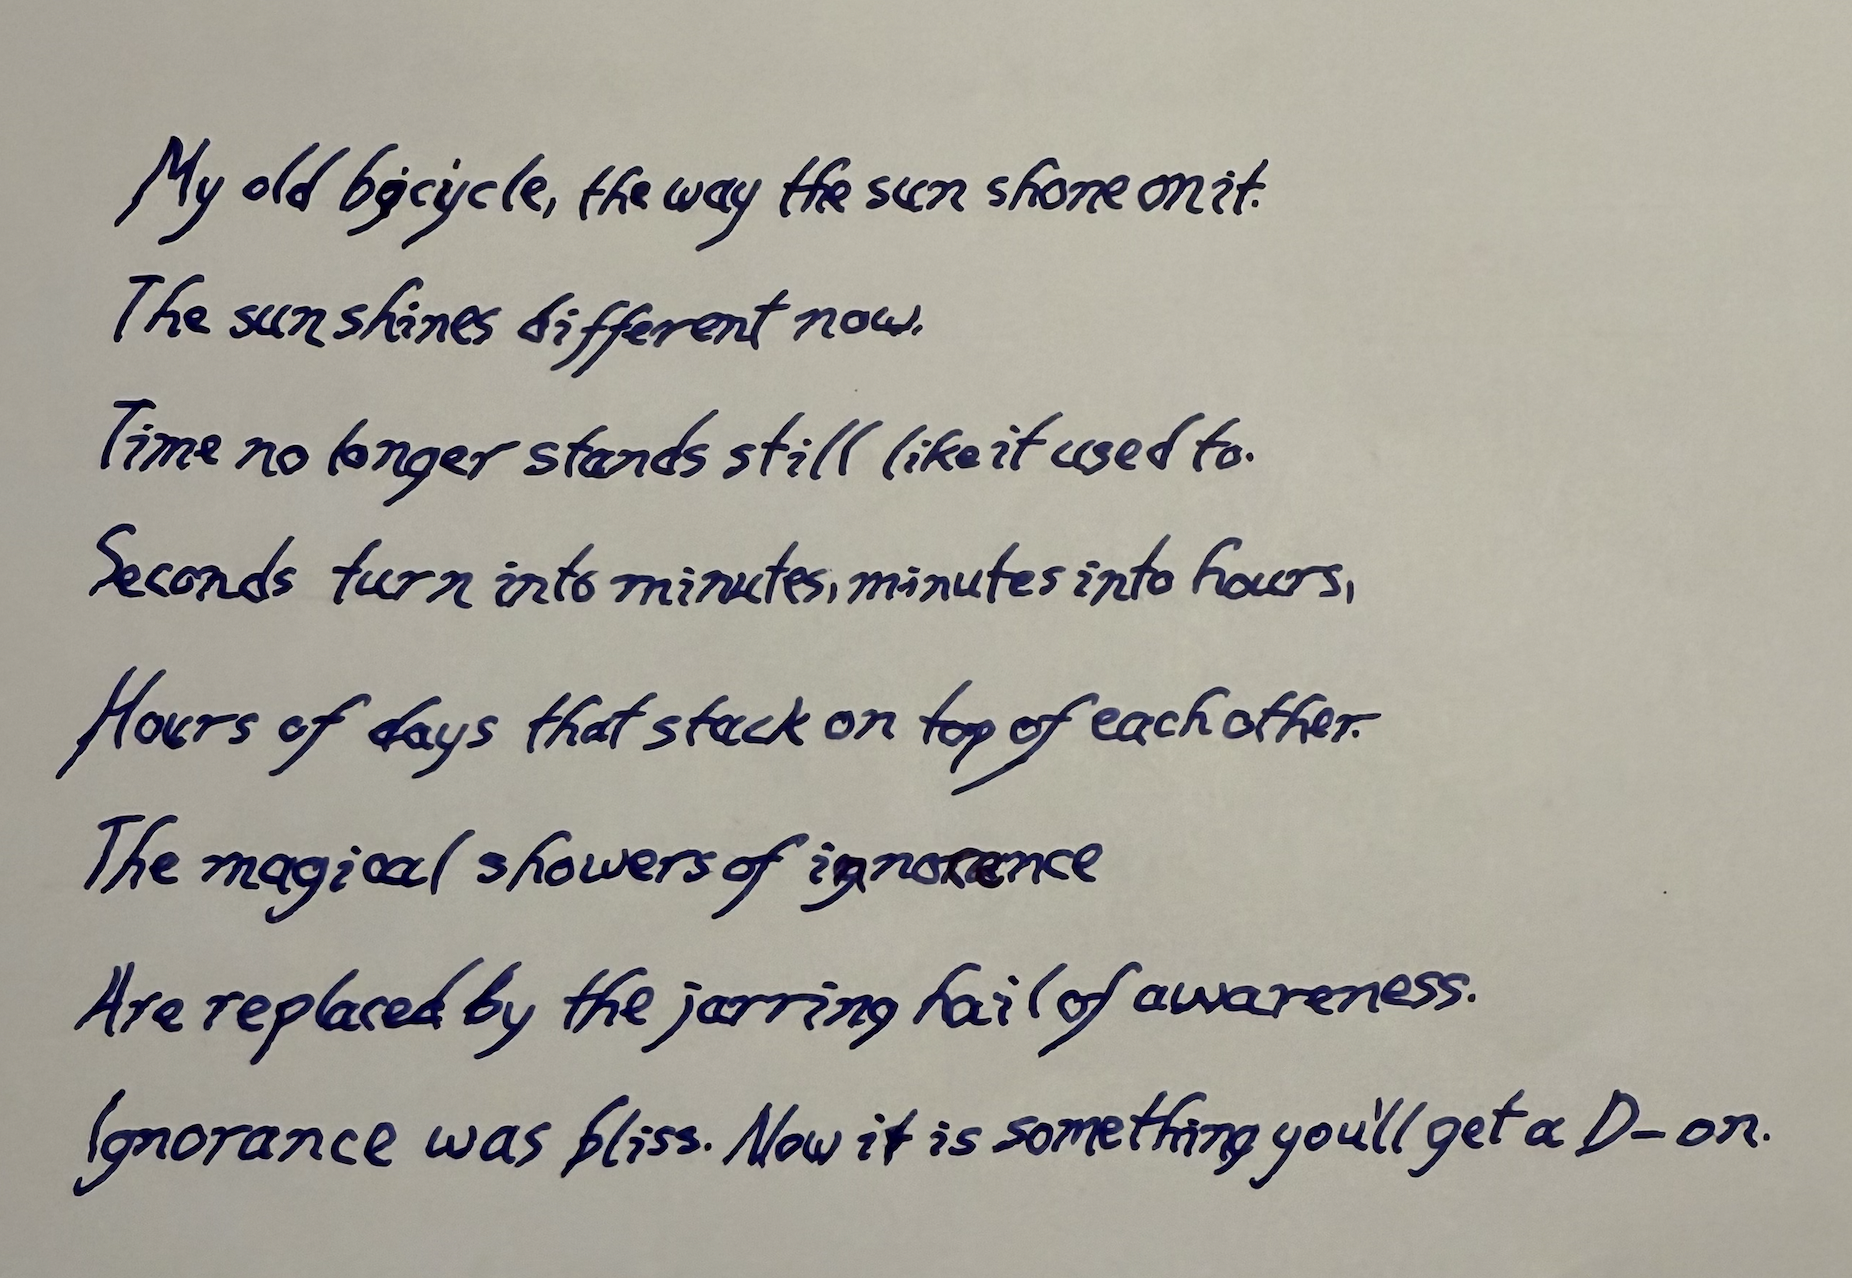 My old bicycle, the way the sun shone on it.
The sun shines different now.
Time no longer stands still like it used to.
Seconds turn into minutes, minutes into hours,
Hours of days that stack on top of each other.
The magical showers of ignorance
Are replaced by the jarring hail of awareness.
Ignorance was bliss. Now it is something you'll get a D- on.